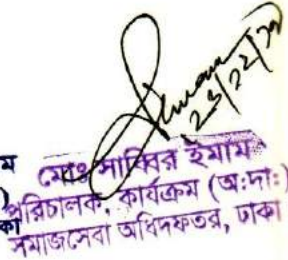 ২৩/১২/১৯
ম মোঃ সাব্বির ইমাম
) পরিচালক, কার্যক্রম (অ:দা:)
কা সমাজসেবা অধিদফতর, ঢাকা